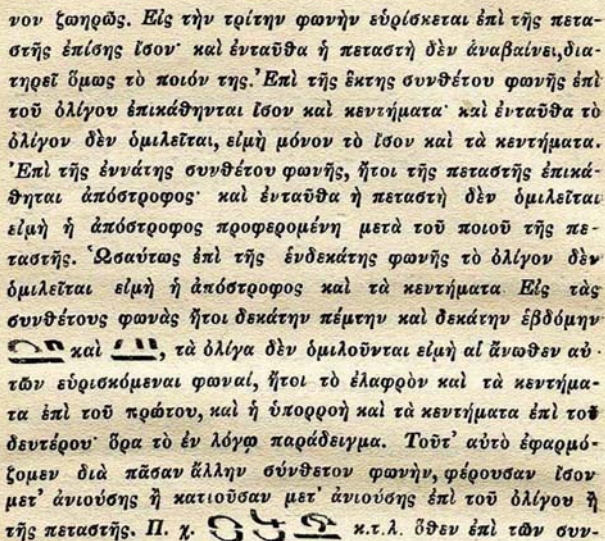 νον ζωηρῶς. Εἰς τὴν τρίτην φωνὴν εὑρίσκεται ἐπὶ τῆς πετα-
στῆς ἐπίσης ἴσον· καὶ ἐνταῦθα ἡ πεταστὴ δὲν ἀναβαίνει, δια-
τηρεῖ ὅμως τὸ ποιόν της. Ἐπὶ τῆς ἕκτης συνθέτου φωνῆς ἐπὶ
τοῦ ὀλίγου ἐπικάθηνται ἴσον καὶ κεντήματα· καὶ ἐνταῦθα τὸ
ὀλίγον δὲν ὁμιλεῖται, εἰμὴ μόνον τὸ ἴσον καὶ τὰ κεντήματα.
Ἐπὶ τῆς ἐννάτης συνθέτου φωνῆς, ἤτοι τῆς πεταστῆς ἐπικά-
θηται ἀπόστροφος· καὶ ἐνταῦθα ἡ πεταστὴ δὲν ὁμιλεῖται
εἰμὴ ἡ ἀπόστροφος προφερομένη μετὰ τοῦ ποιοῦ τῆς πε-
ταστῆς. Ὡσαύτως ἐπὶ τῆς ἑνδεκάτης φωνῆς τὸ ὀλίγον δὲν
ὁμιλεῖται εἰμὴ ἡ ἀπόστροφος καὶ τὰ κεντήματα Εἰς τὰς
συνθέτους φωνὰς ἤτοι δεκάτην πέμπτην καὶ δεκάτην ἑβδόμην
καὶ , τὰ ὀλίγα δὲν ὁμιλοῦνται εἰμὴ αἱ ἄνωθεν αὐ-
τῶν εὑρισκόμεναι φωναί, ἤτοι τὸ ἐλαφρὸν καὶ τὰ κεντήμα-
τα ἐπὶ τοῦ πρώτου, καὶ ἡ ὑπορροὴ καὶ τὰ κεντήματα ἐπὶ τοῦ
δευτέρου· ὅρα τὸ ἐν λόγῳ παράδειγμα. Τοῦτ' αὐτὸ ἐφαρμό-
ζομεν διὰ πᾶσαν ἄλλην σύνθετον φωνὴν, φέρουσαν ἴσον
μετ' ἀνιούσης ἢ κατιοῦσαν μετ' ἀνιούσης ἐπὶ τοῦ ὀλίγου ἢ
τῆς πεταστῆς. Π. χ. κ.τ.λ. ὅθεν ἐπὶ τῶν συν-